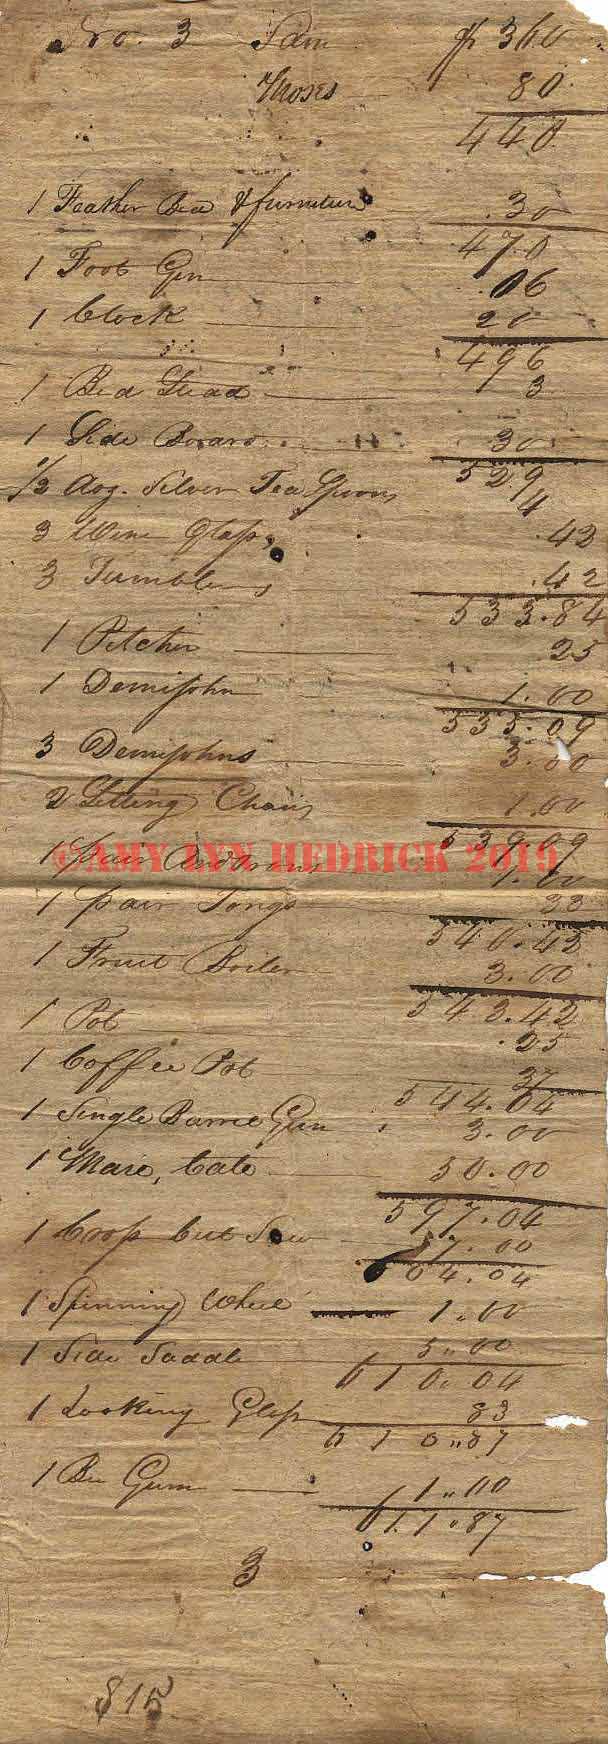 No. 3 Sam $ 360
Moses 80
440
1 Feather Bed & furniture 30
470
1 Foot Gin 06
1 Clock 20
496
1 Bed Stead 3
1 Side Board 30
529
1/2 Doz. Silver Tea Spoons 4
3 Wine Glass, .42
3 Tumblers .42
533.84
1 Pitcher 25
1 Demijohn 1.00
535.09
3 Demijohns 3.00
2 Setting Chairs 1.00
539.09
1 pair Andirons 1.00
©AMY LYN HEDRICK 2019
1 pair Tongs 33
540.42
1 Fruit Boiler 3.00
543.42
1 Pot .25
1 Coffee Pot 37
544.04
1 Single Barrel Gun 3.00
1 Mare, Cate 50.00
597.04
1 Cross Cut Saw 7.00
604.04
1 Spinning Wheel 1.00
1 Side Saddle 5.00
610.04
1 Looking Glass 83
610.87
1 Bee Gum 1.00
611.87
3
$15